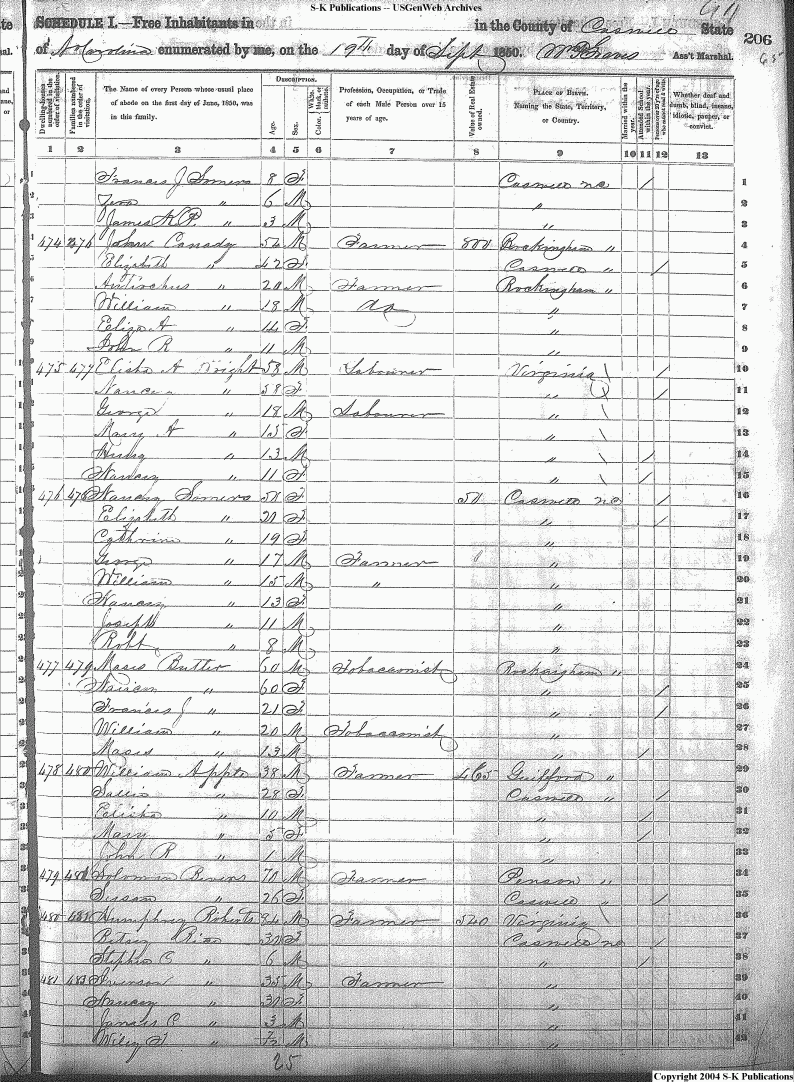 S-K Publications -- USGenWeb Archives
SCHEDULE I.—Free Inhabitants in in the County of Caswell State
of N. Carolina enumerated by me, on the 19th day of Sept 1850. Ass't Marshal. 206
Dwelling-houses numbered in the order of visitation.
Families numbered in the order of visitation.
The Name of every Person whose usual place of abode on the first day of June, 1850, was in this family.
DESCRIPTION.
Age.
Sex.
Color, White, black, or mulatto.
Profession, Occupation, or Trade of each Male Person over 15 years of age.
Value of Real Estate owned.
PLACE OF BIRTH. Naming the State, Territory, or Country.
Married within the year.
Attended School within the year.
Persons over 20 y'rs of age who cannot read & write.
Whether deaf and dumb, blind, insane, idiotic, pauper, or convict.
1 2 3 4 5 6 7 8 9 10 11 12 13
1 Francis J Somers 8 F Caswell nc / 1
2 " 6 M " 2
3 James K P. " 3 M " 3
474 476 John Canady 54 M Farmer 800 Rockingham " 4
Elizabeth " 42 F Caswell " / 5
Antiochus " 20 M Farmer Rockingham " 6
William " 18 M do " 7
Eliza A " 14 F " 8
John R " 11 M " 9
475 477 Elisha A Wright 58 M Labourer Virginia \ / 10
Nancy " 58 F " / 11
George " 18 M Labourer " \ 12
Mary A " 15 F " \ 13
" 13 M " \ / 14
Nancy " 11 F " \ / 15
476 478 Nancy Somers 50 F 50 Caswell nc / 16
Elizabeth " 20 F " / 17
Cathrine " 19 F " 18
George " 17 M Farmer " 19
William " 15 M " " 20
Nancy " 13 F " 21
Joseph " 11 M " 22
Robt " 8 M " 23
477 479 Moses Butler 60 M Tobacconist Rockingham " 24
" 60 F " / 25
Frances J " 21 F " / 26
William " 20 M Tobacconist " 27
Moses " 13 M " / 28
478 480 William Apple 38 M Farmer 465 Guilford " 29
Sallie " 28 F Caswell " / 30
Elisha " 10 M " / 31
Mary " 5 F " / 32
John R " 1 M " 33
479 481 Bivens 70 M Farmer Person " 34
" 26 F Caswell " / 35
480 482 Humphrey Roberts 94 M Farmer 540 Virginia \ 36
Betsy 30 F Caswell nc / 37
Stephen C " 6 M " / 38
481 483 " 35 M Farmer " 39
Nancy " 30 F " 40
James C " 3 M " 41
Wiley F " M " 42
25
Copyright 2004 S-K Publications